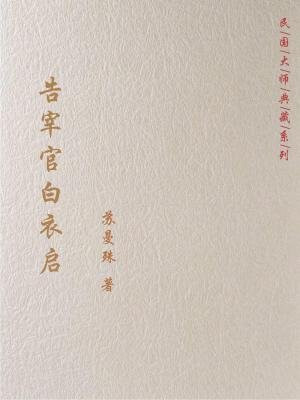 民国大师典藏系列
告宰官白衣启
苏曼殊 著